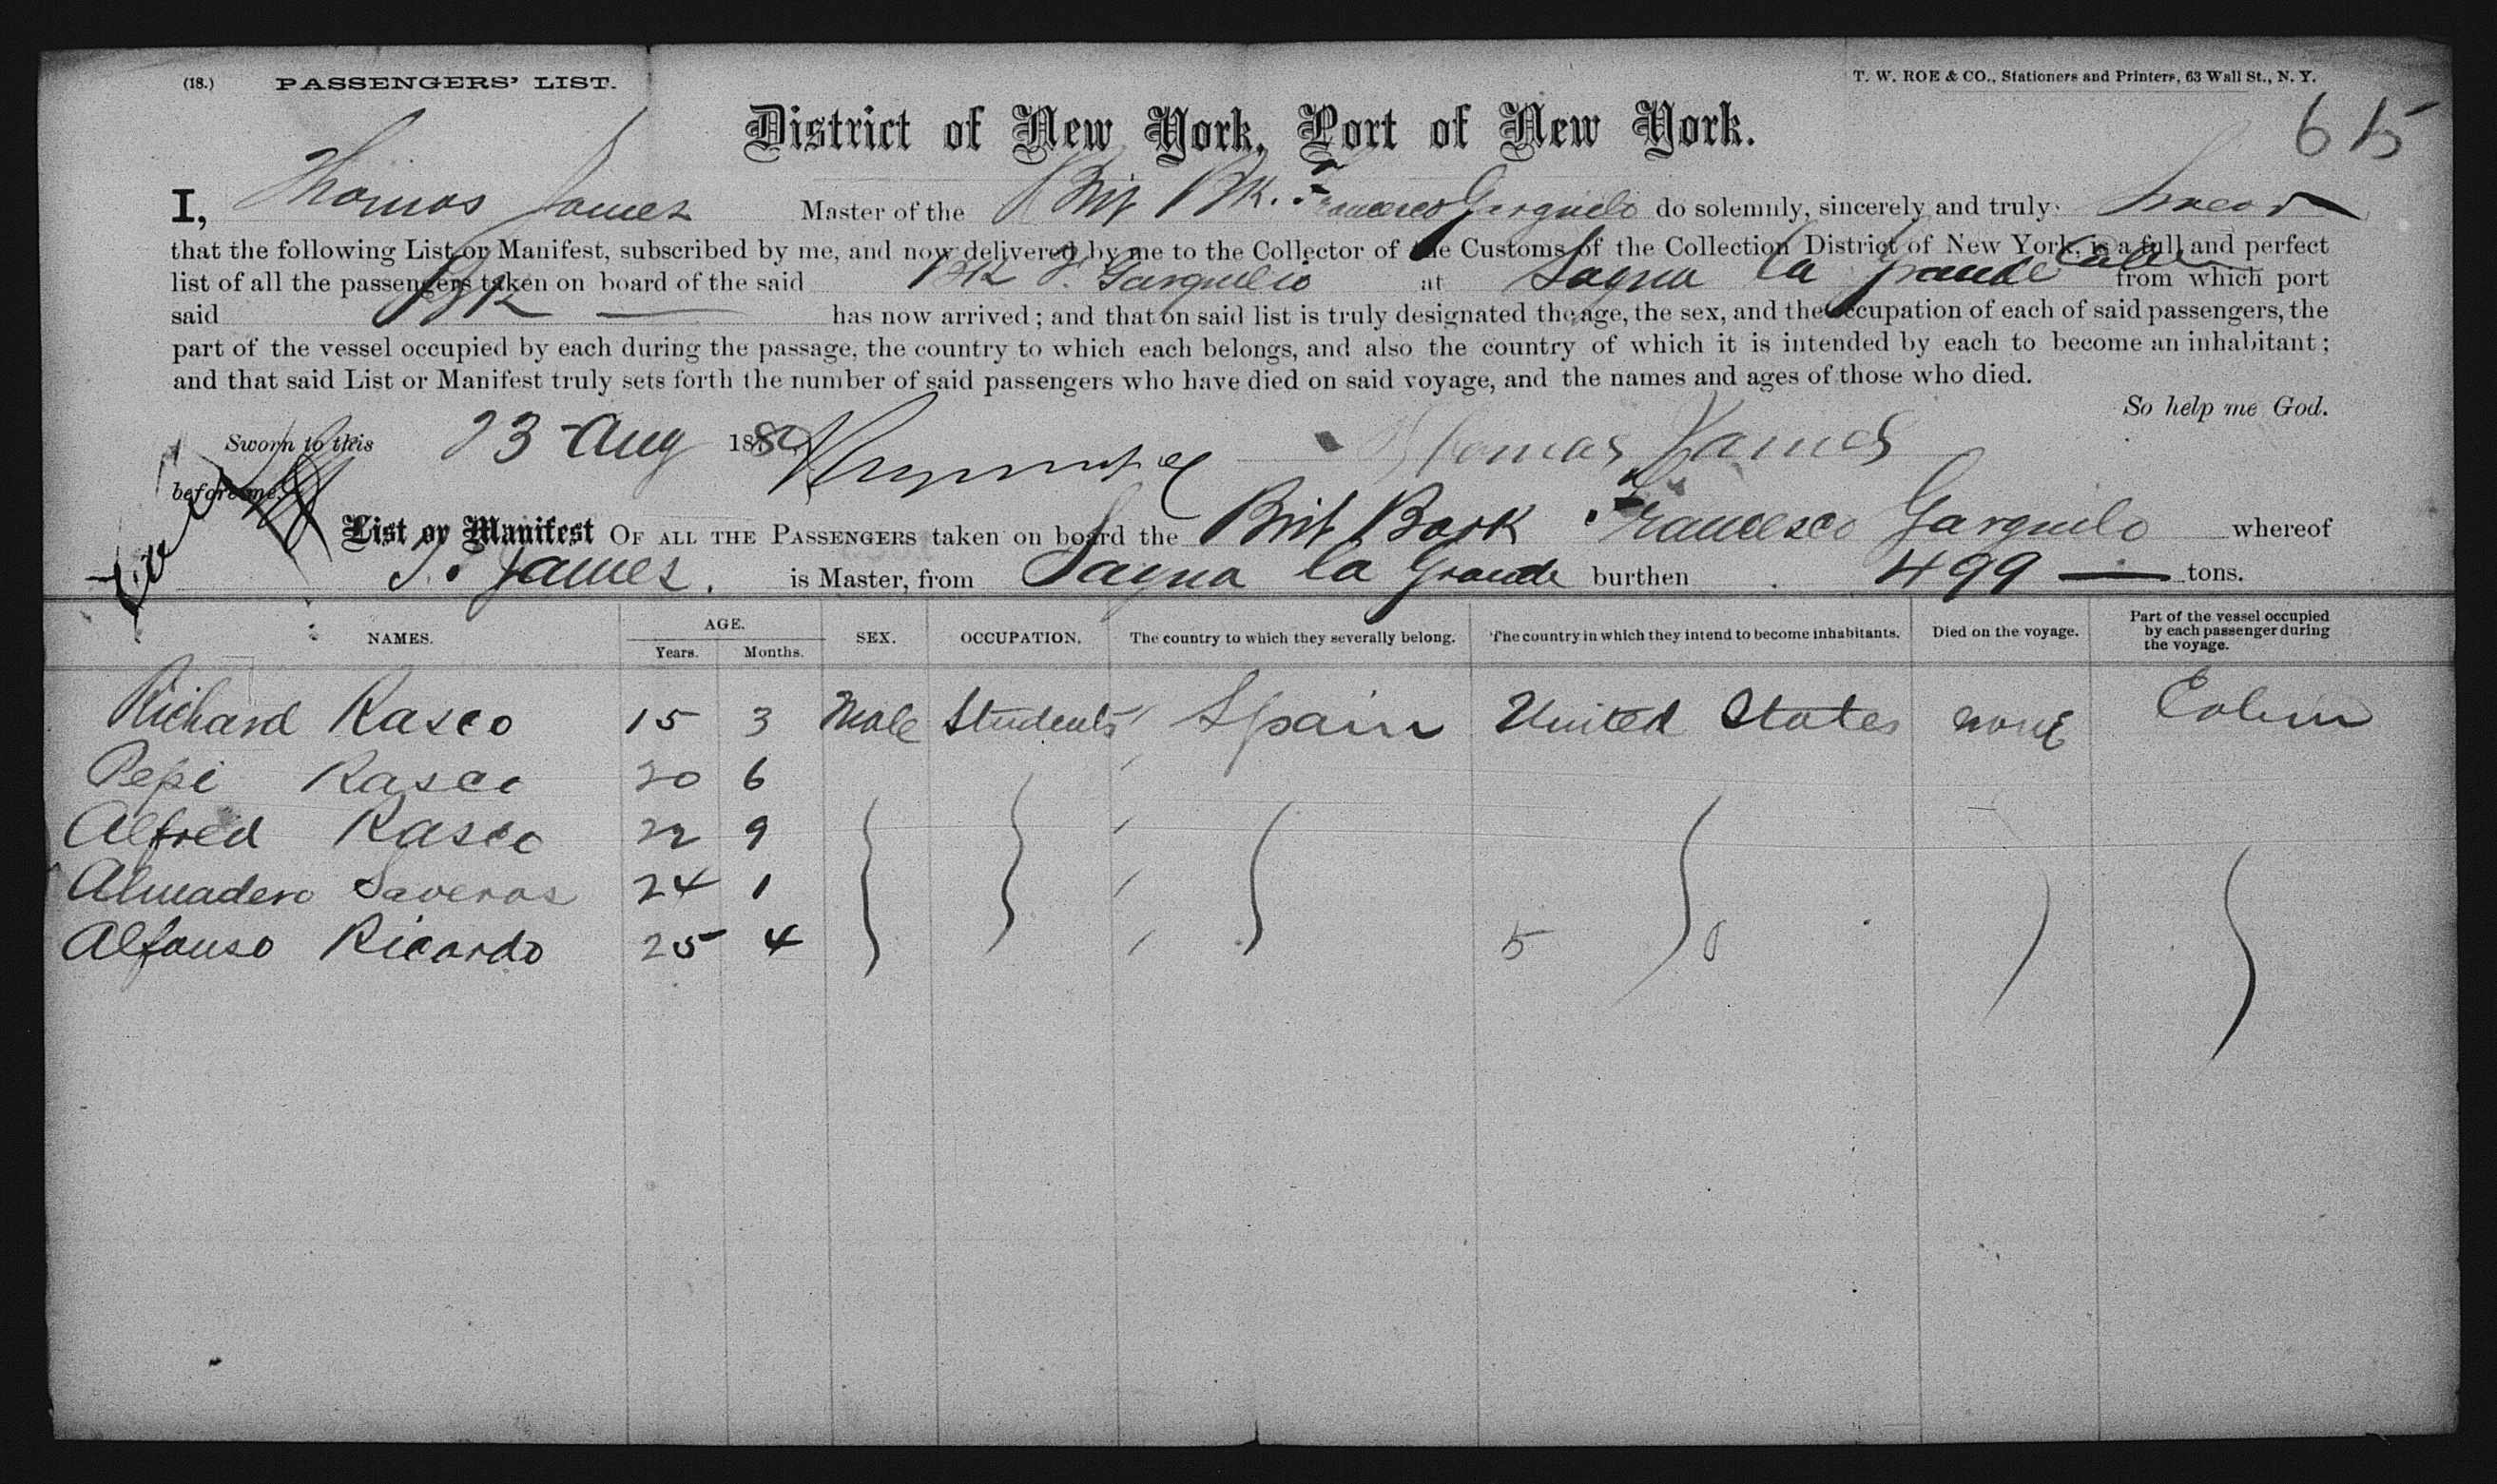 (18.) PASSENGERS' LIST.
T. W. ROE & CO., Stationers and Printers, 63 Wall St., N. Y.
615
District of New York, Port of New York.
I, Thomas James Master of the Brit Bk. Francesco Garguilo do solemnly, sincerely and truly Swear
that the following List or Manifest, subscribed by me, and now delivered by me to the Collector of the Customs of the Collection District of New York, is a full and perfect
list of all the passengers taken on board of the said Bk F. Garguilio at Sagua la Grande Cuba from which port
said Bk has now arrived; and that on said list is truly designated the age, the sex, and the occupation of each of said passengers, the
part of the vessel occupied by each during the passage, the country to which each belongs, and also the country of which it is intended by each to become an inhabitant;
and that said List or Manifest truly sets forth the number of said passengers who have died on said voyage, and the names and ages of those who died.
So help me God.
Sworn to this 23 Aug 1880 Thomas James
before me
Five
List or Manifest OF ALL THE PASSENGERS taken on board the Brit Bark Francesco Garguilo whereof
T. James. is Master, from Sagua la Grande burthen 499 — tons.
NAMES. AGE. Years. Months. SEX. OCCUPATION. The country to which they severally belong. The country in which they intend to become inhabitants. Died on the voyage. Part of the vessel occupied by each passenger during the voyage.
Richard Rasco 15 3 Male Students Spain United States none Cabin
Pepi Rasco 20 6
Alfred Rasco 22 9
Almadero Saveros 24 1
Alfonso Ricardo 25 4 5 0